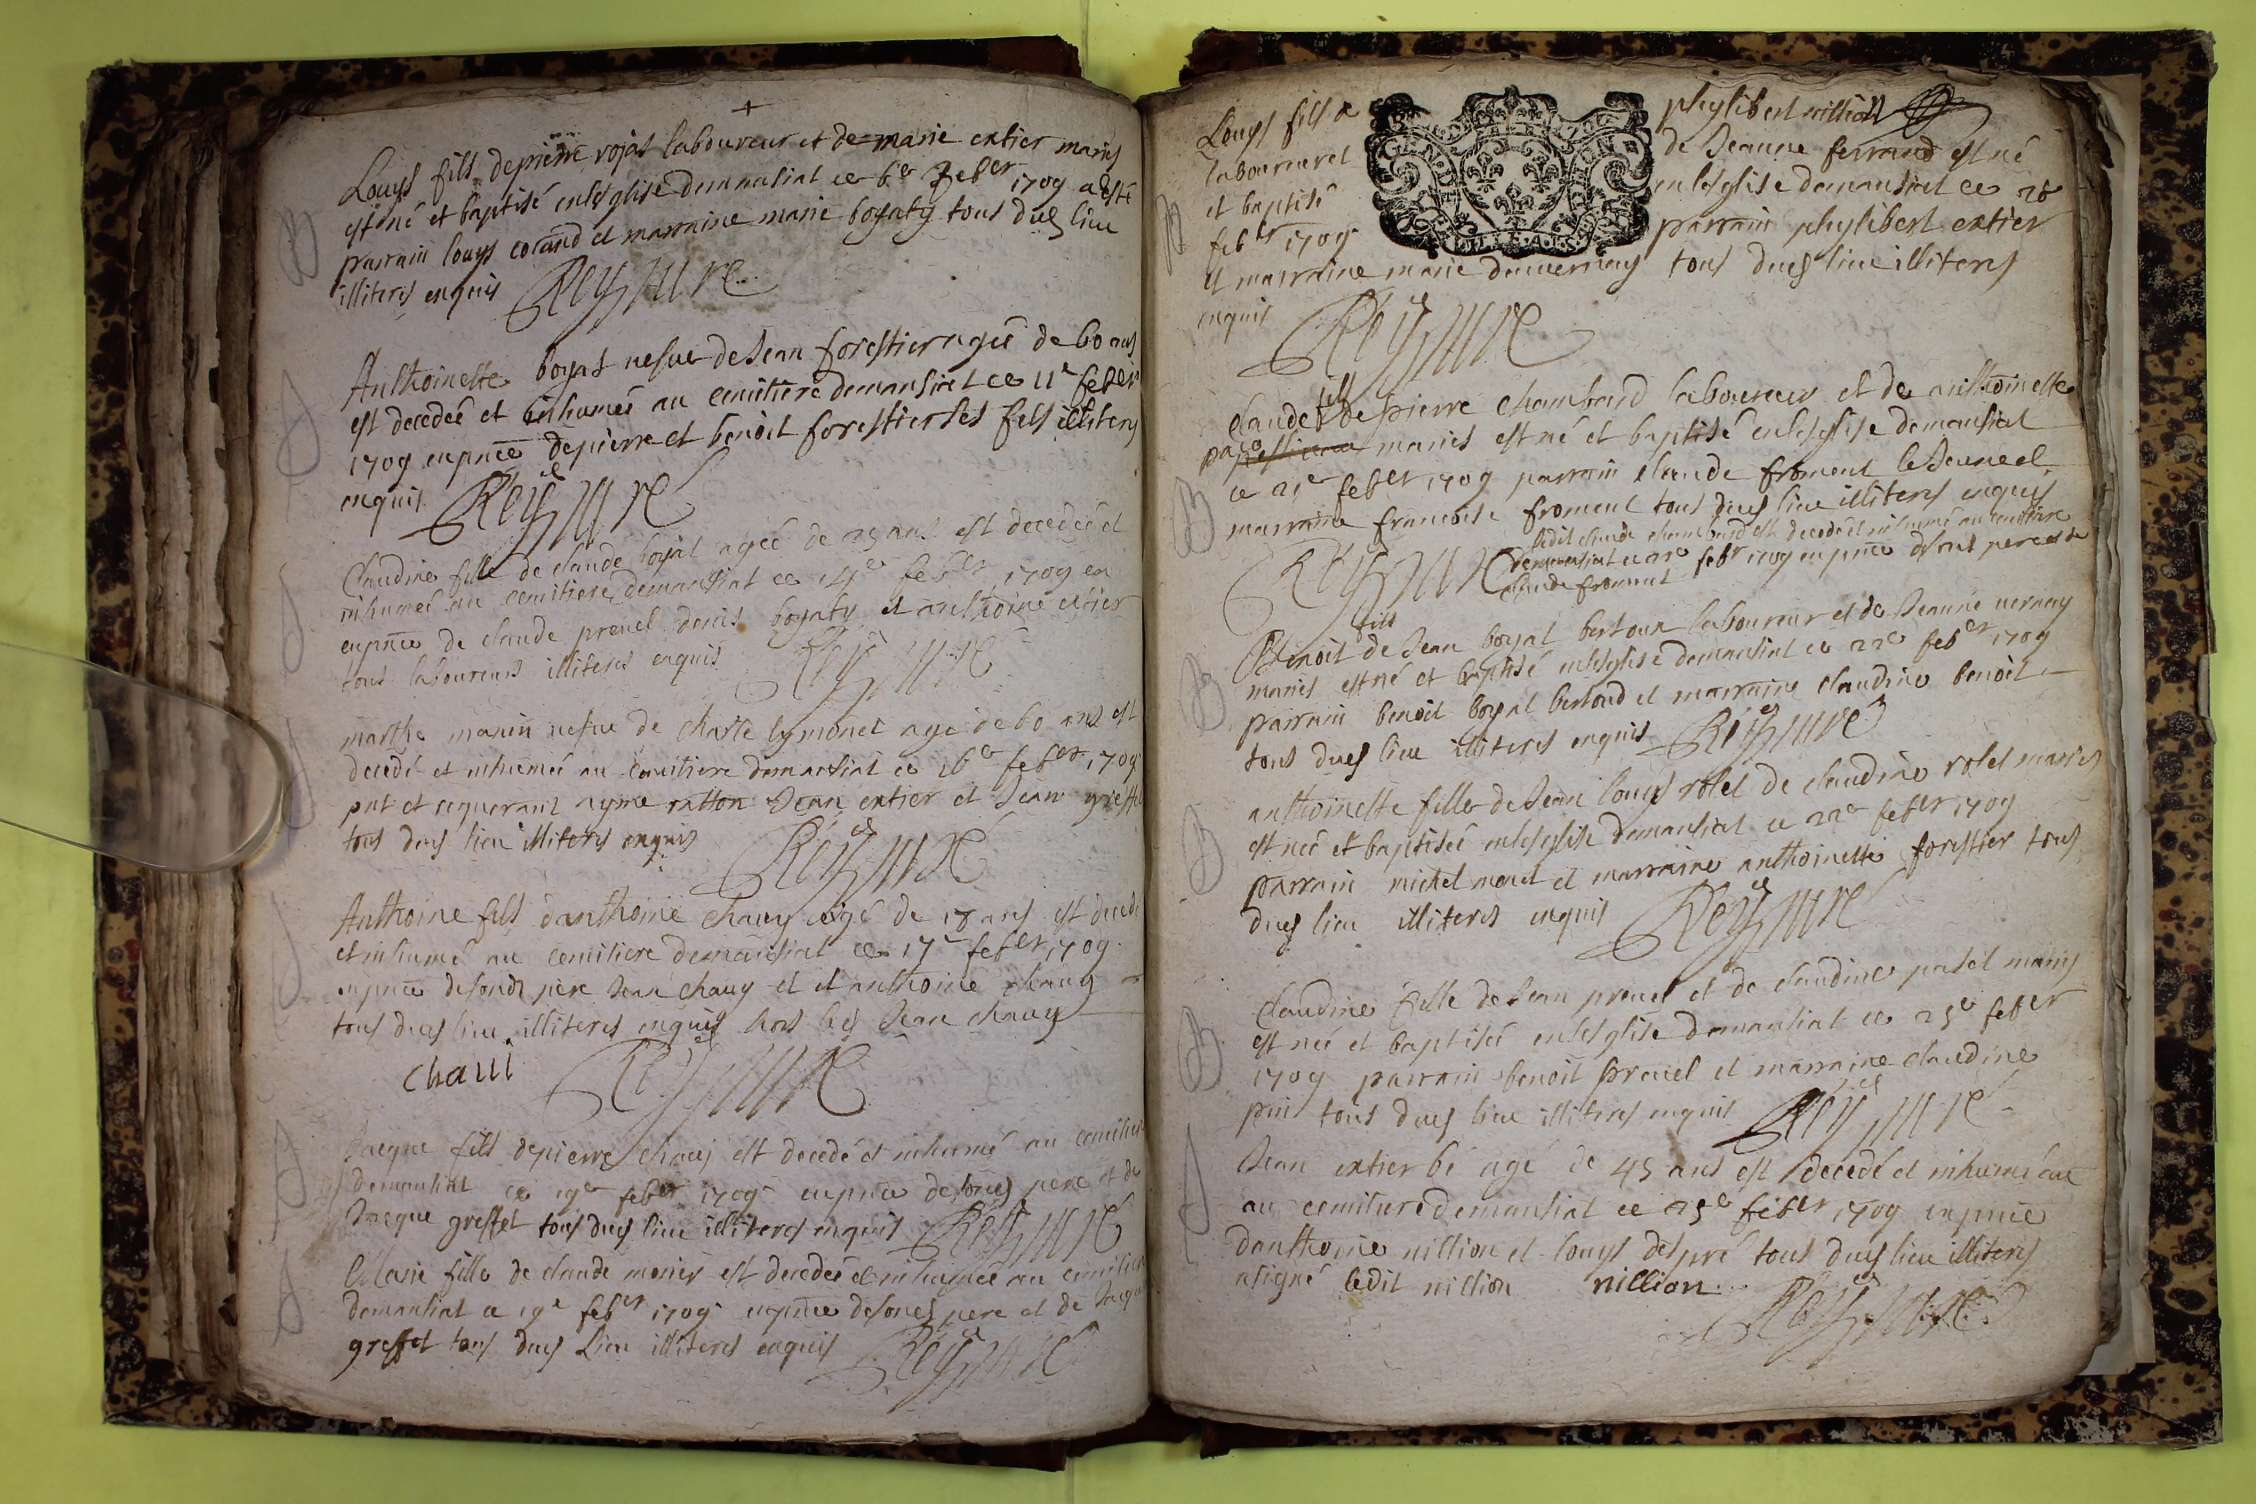 Louys fils de pierre rojat laboureur et de marie extier mariés
est né et baptisé en lesglise demansiat ce 6e feber 1709 a esté
parrain louys coland et marraine marie boyaty tous dud lieu
illiteres enquis Rey cure
Anthoinette boyat vefue de Jean forestier agée de 60 ans
est decedée et inhumée au cemitiere demansiat ce 11e feber
1709 en pnce de pierre et benoit forestier ses fils illiteres
enquis Rey cure
Claudine fille de claude boyat agée de 25 ans est decedée et
inhumée au cemitiere demansiat ce 14e feber 1709 en
en pnce de claude preuel denis boyaty et anthoine extier
tous laboureurs illiteres enquis Rey cure
marthe manin vefue de charle lymonet agé de 60 ans est
decedé et inhumée au cemitiere demansiat ce 16e feber 1709
pnt et requerant ayme ratton Jean extier et Jean greffet
tous dud lieu illiteres enquis Rey cure
Anthoine fils danthoine chauy agé de 18 ans est decedé
et inhumé au cemitiere demansiat ce 17e feber 1709
en pnce de sond pere Jean chauy et et anthoine chauy
tous dud lieu illiteres enquis hors led Jean chauy
chaui Rey cure
Jacque fils de pierre chauy est decedé et inhumé au cemitiere
demansiat ce 19e feber 1709 en pnce de son pere et de
Jacque greffet tous dud lieu illiteres enquis Rey cure
Marie fille de claude monier est decedée et inhumée au cemitiere
demansiat ce 19e feber 1709 en pnce de son pere et de Jacque
greffet tous dud lieu illiteres enquis Rey cure
Louys fils de phylibert nillion
laboureur et de Jeanne ferrand est né
et baptisé en lesglise demansiat ce 20
feber 1709 parrain phylibert extier
et marraine marie duuernay tous dud lieu illiteres
enquis Rey cure
Claude fils de pierre chambard laboureur et de anthoinette
mariés est né et baptisé en lesglise demansiat
ce 21e feber 1709 parrain claude froment le Jeune et
marraine francoise froment tous dud lieu illiteres enquis
Rey cure ledit claude chambard est decedé et inhumé au cemitiere
demansiat ce 22e febr 1709 en pnce de son pere et de
claude froment
Benoit fils de Jean boyat bertoux laboureur et de Jeanne vernay
mariés est né et baptisé en lesglise demansiat ce 22e feber 1709
parrain benoit boyat bertoud et marraine claudine benoit
tous dud lieu illiteres enquis Rey cure
anthoinette fille de Jean louys rolet de claudine rolet mariés
est née et baptisée en lesglise demansiat ce 22e feber 1709
parrain michel monet et marraine anthoinette forestier tous
dud lieu illiteres enquis Rey cure
Claudine fille de Jean preuel et de claudine paset mariés
est née et baptisée en lesglise demansiat ce 25e feber
1709 parrain benoit preuel et marraine claudine
pin tous dud lieu illiteres enquis Rey cure
Jean extier bé agé de 45 ans est decedé et inhumé au
au cemitiere demansiat ce 25e feber 1709 en pnce
danthoine nillion et louys despré tous dud lieu illiteres
a signé ledit nillion nillion Rey cure